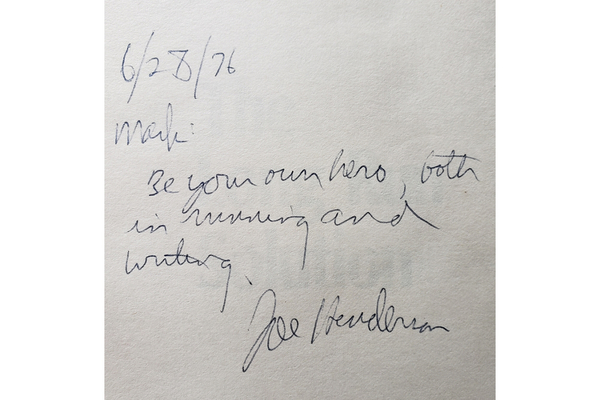 6/28/76
Mark:
Be your own hero, both
in running and
writing.
Joe Henderson